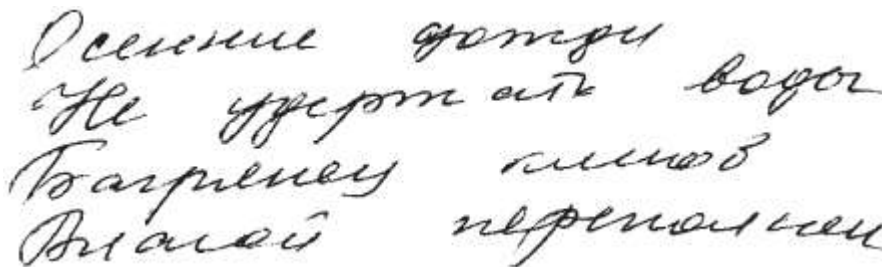 Осенние дожди
Не удержать воды
Багрянец клёнов
Влагой переполнен